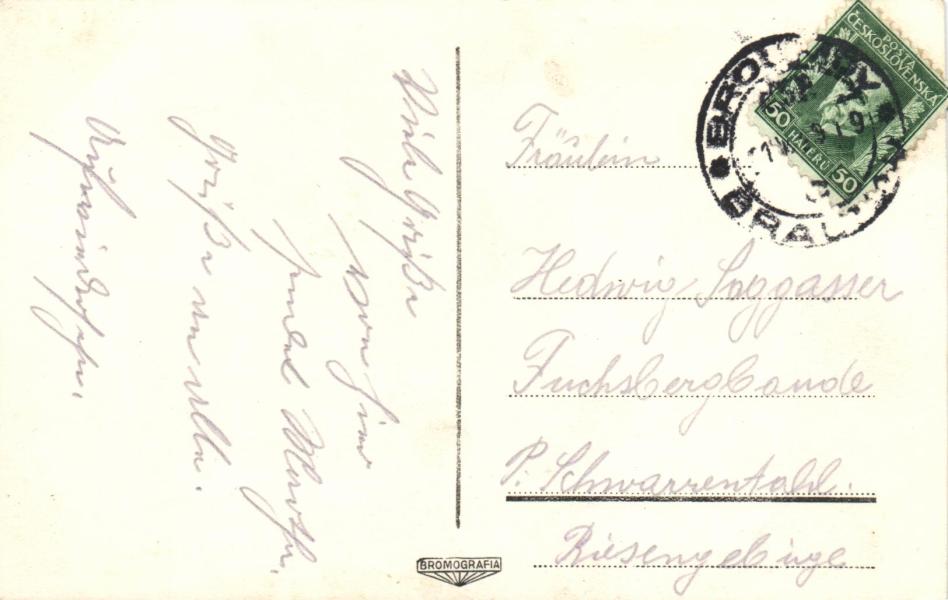 Viele Grüße
von hier
sendet
Grüße an alle.
Auf Wiedersehn.
BROUMOV
BRAUNAU
POŠTA
ČESKOSLOVENSKÁ
50 HALÉŘŮ 50
Fräulein
Hedwig Soggasser
Fuchsbergbaude
P. Schwarzentahl.
Riesengebirge
BROMOGRAFIA